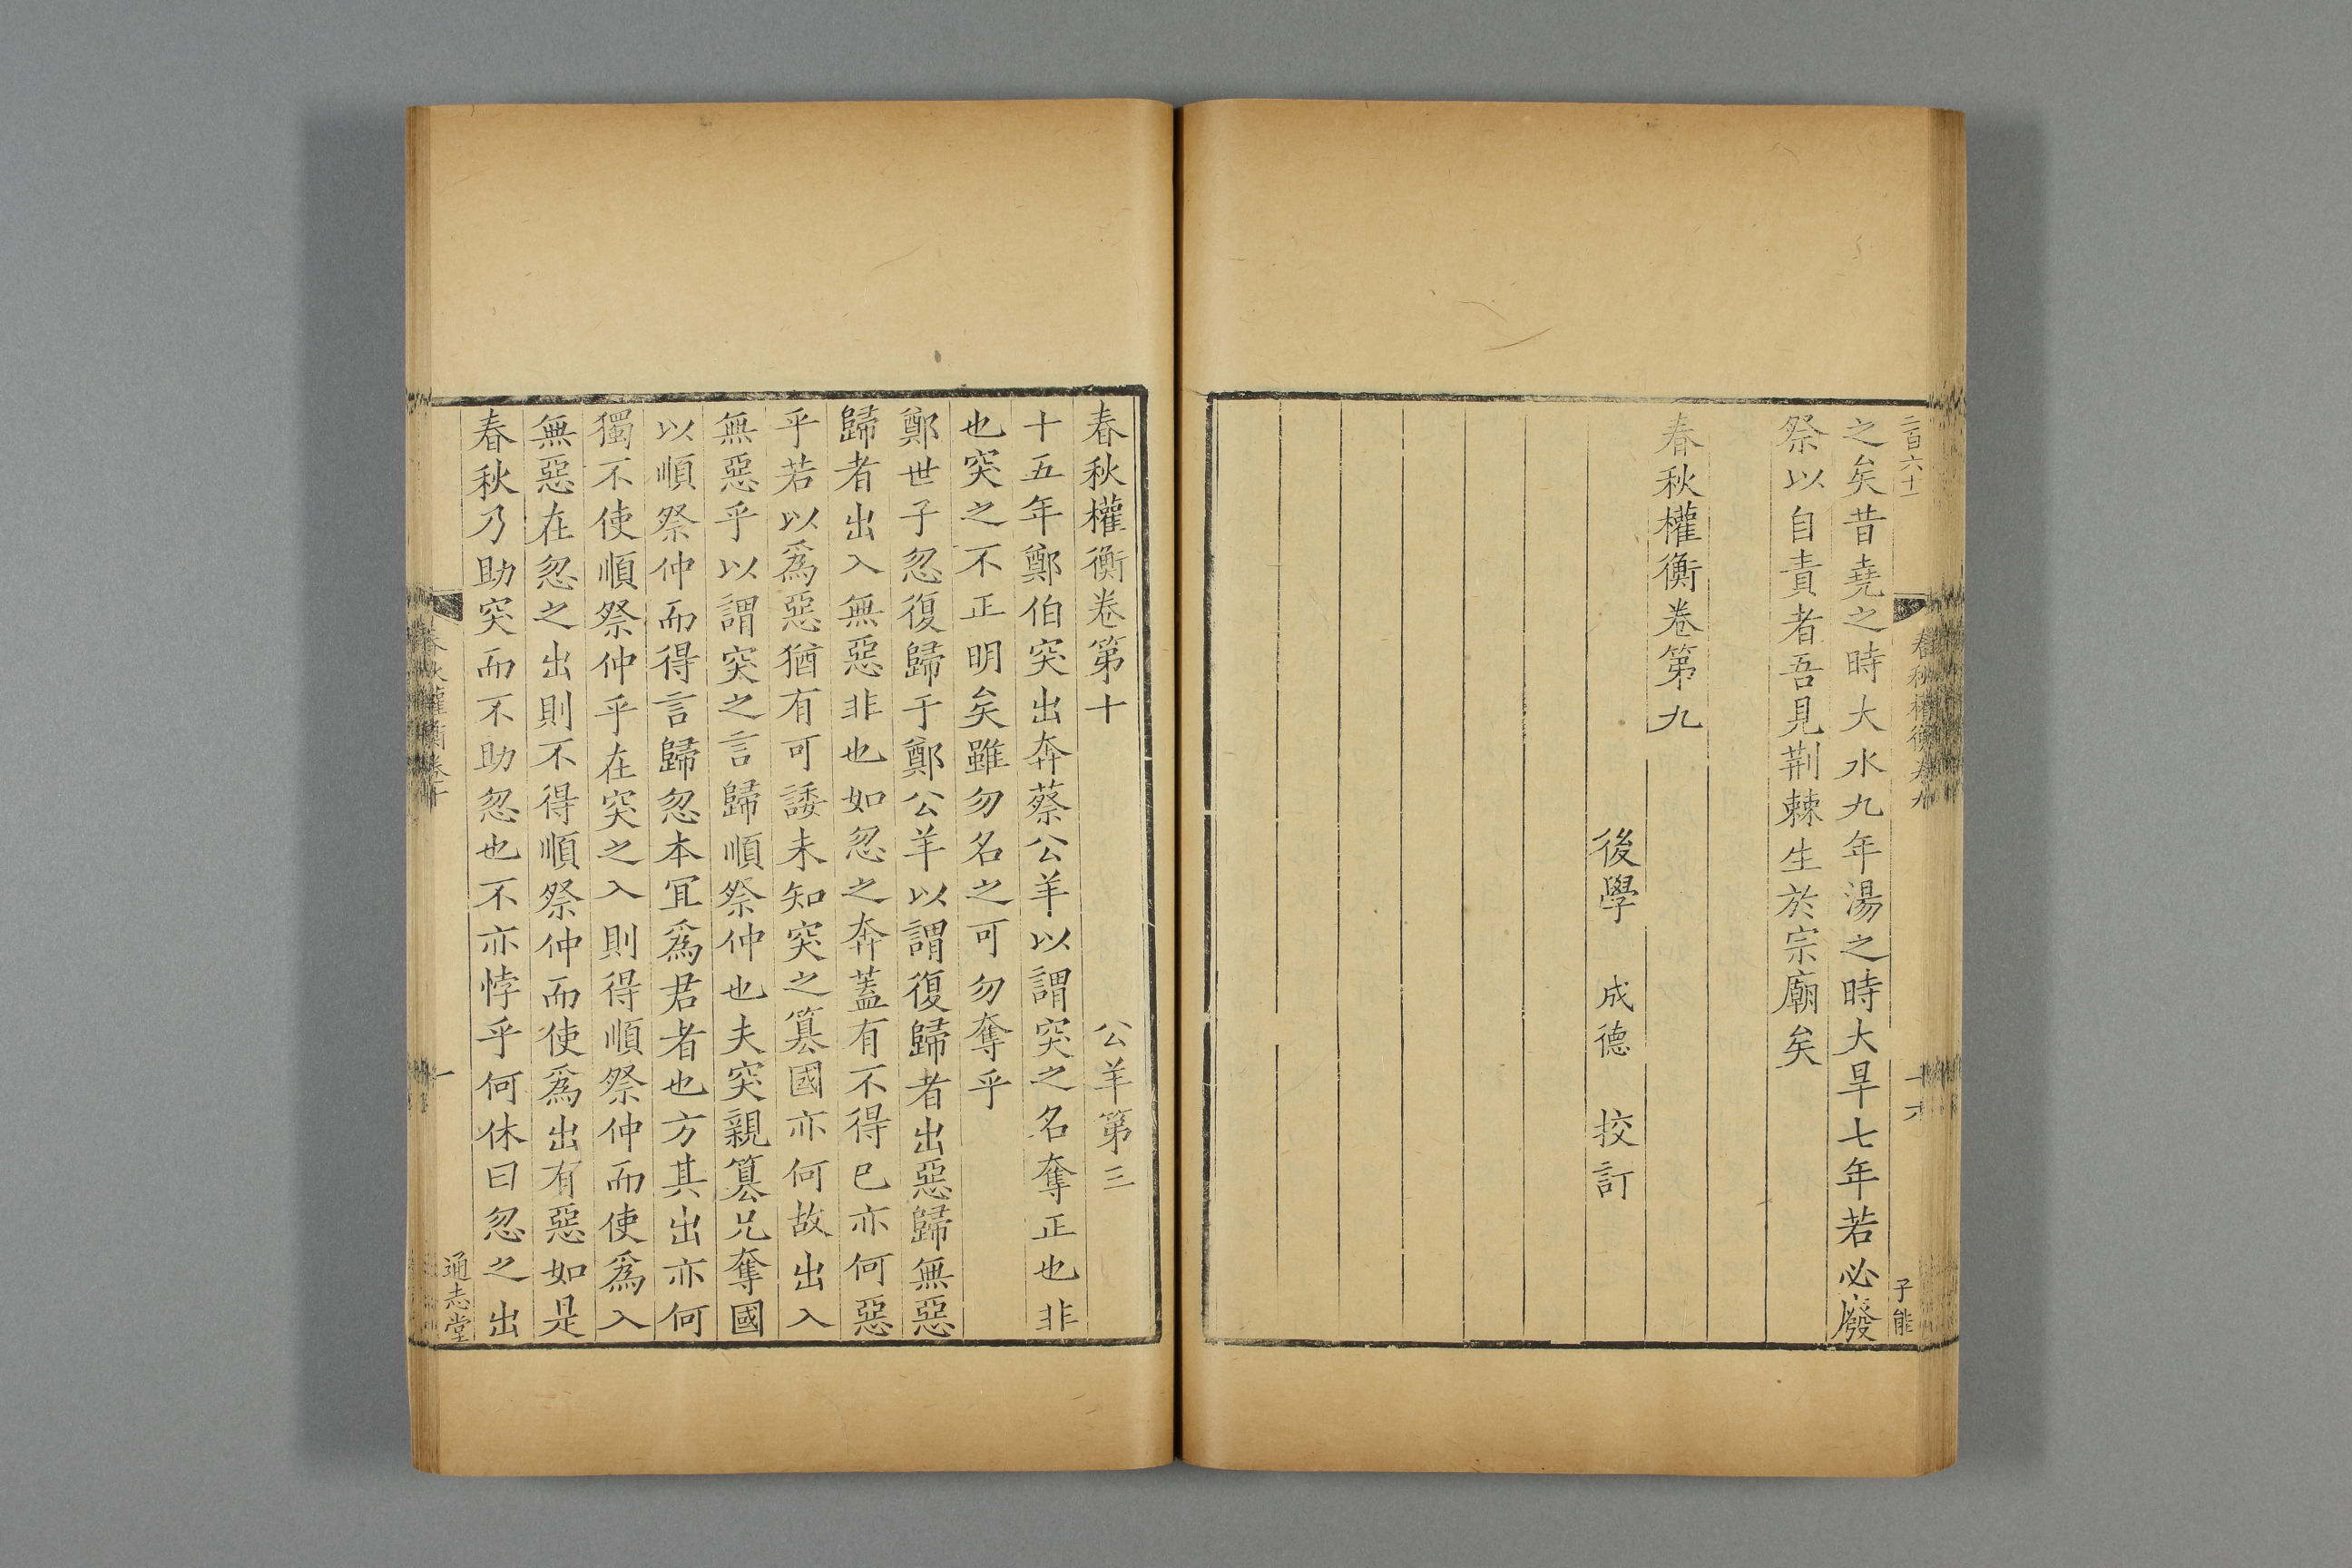 二百六十一
春秋權衡卷九
子能
之矣昔堯之時大水九年湯之時大旱七年若必廢
祭以自責者吾見荆棘生於宗廟矣
春秋權衡卷第九
後學 成德 挍訂
春秋權衡卷第十 公羊第三
十五年鄭伯突出奔蔡公羊以謂突之名奪正也非
也突之不正明矣雖勿名之可勿奪乎
鄭世子忽復歸于鄭公羊以謂復歸者出惡歸無惡
歸者出入無惡非也如忽之奔蓋有不得已亦何惡
乎若以爲惡猶有可諉未知突之篡國亦何故出入
無惡乎以謂突之言歸順祭仲也夫突親篡兄奪國
以順祭仲而得言歸忽本冝爲君者也方其出亦何
獨不使順祭仲乎在突之入則得順祭仲而使爲入
無惡在忽之出則不得順祭仲而使爲出有惡如是
春秋乃助突而不助忽也不亦悖乎何休曰忽之出
春秋權衡卷十
一
通志堂